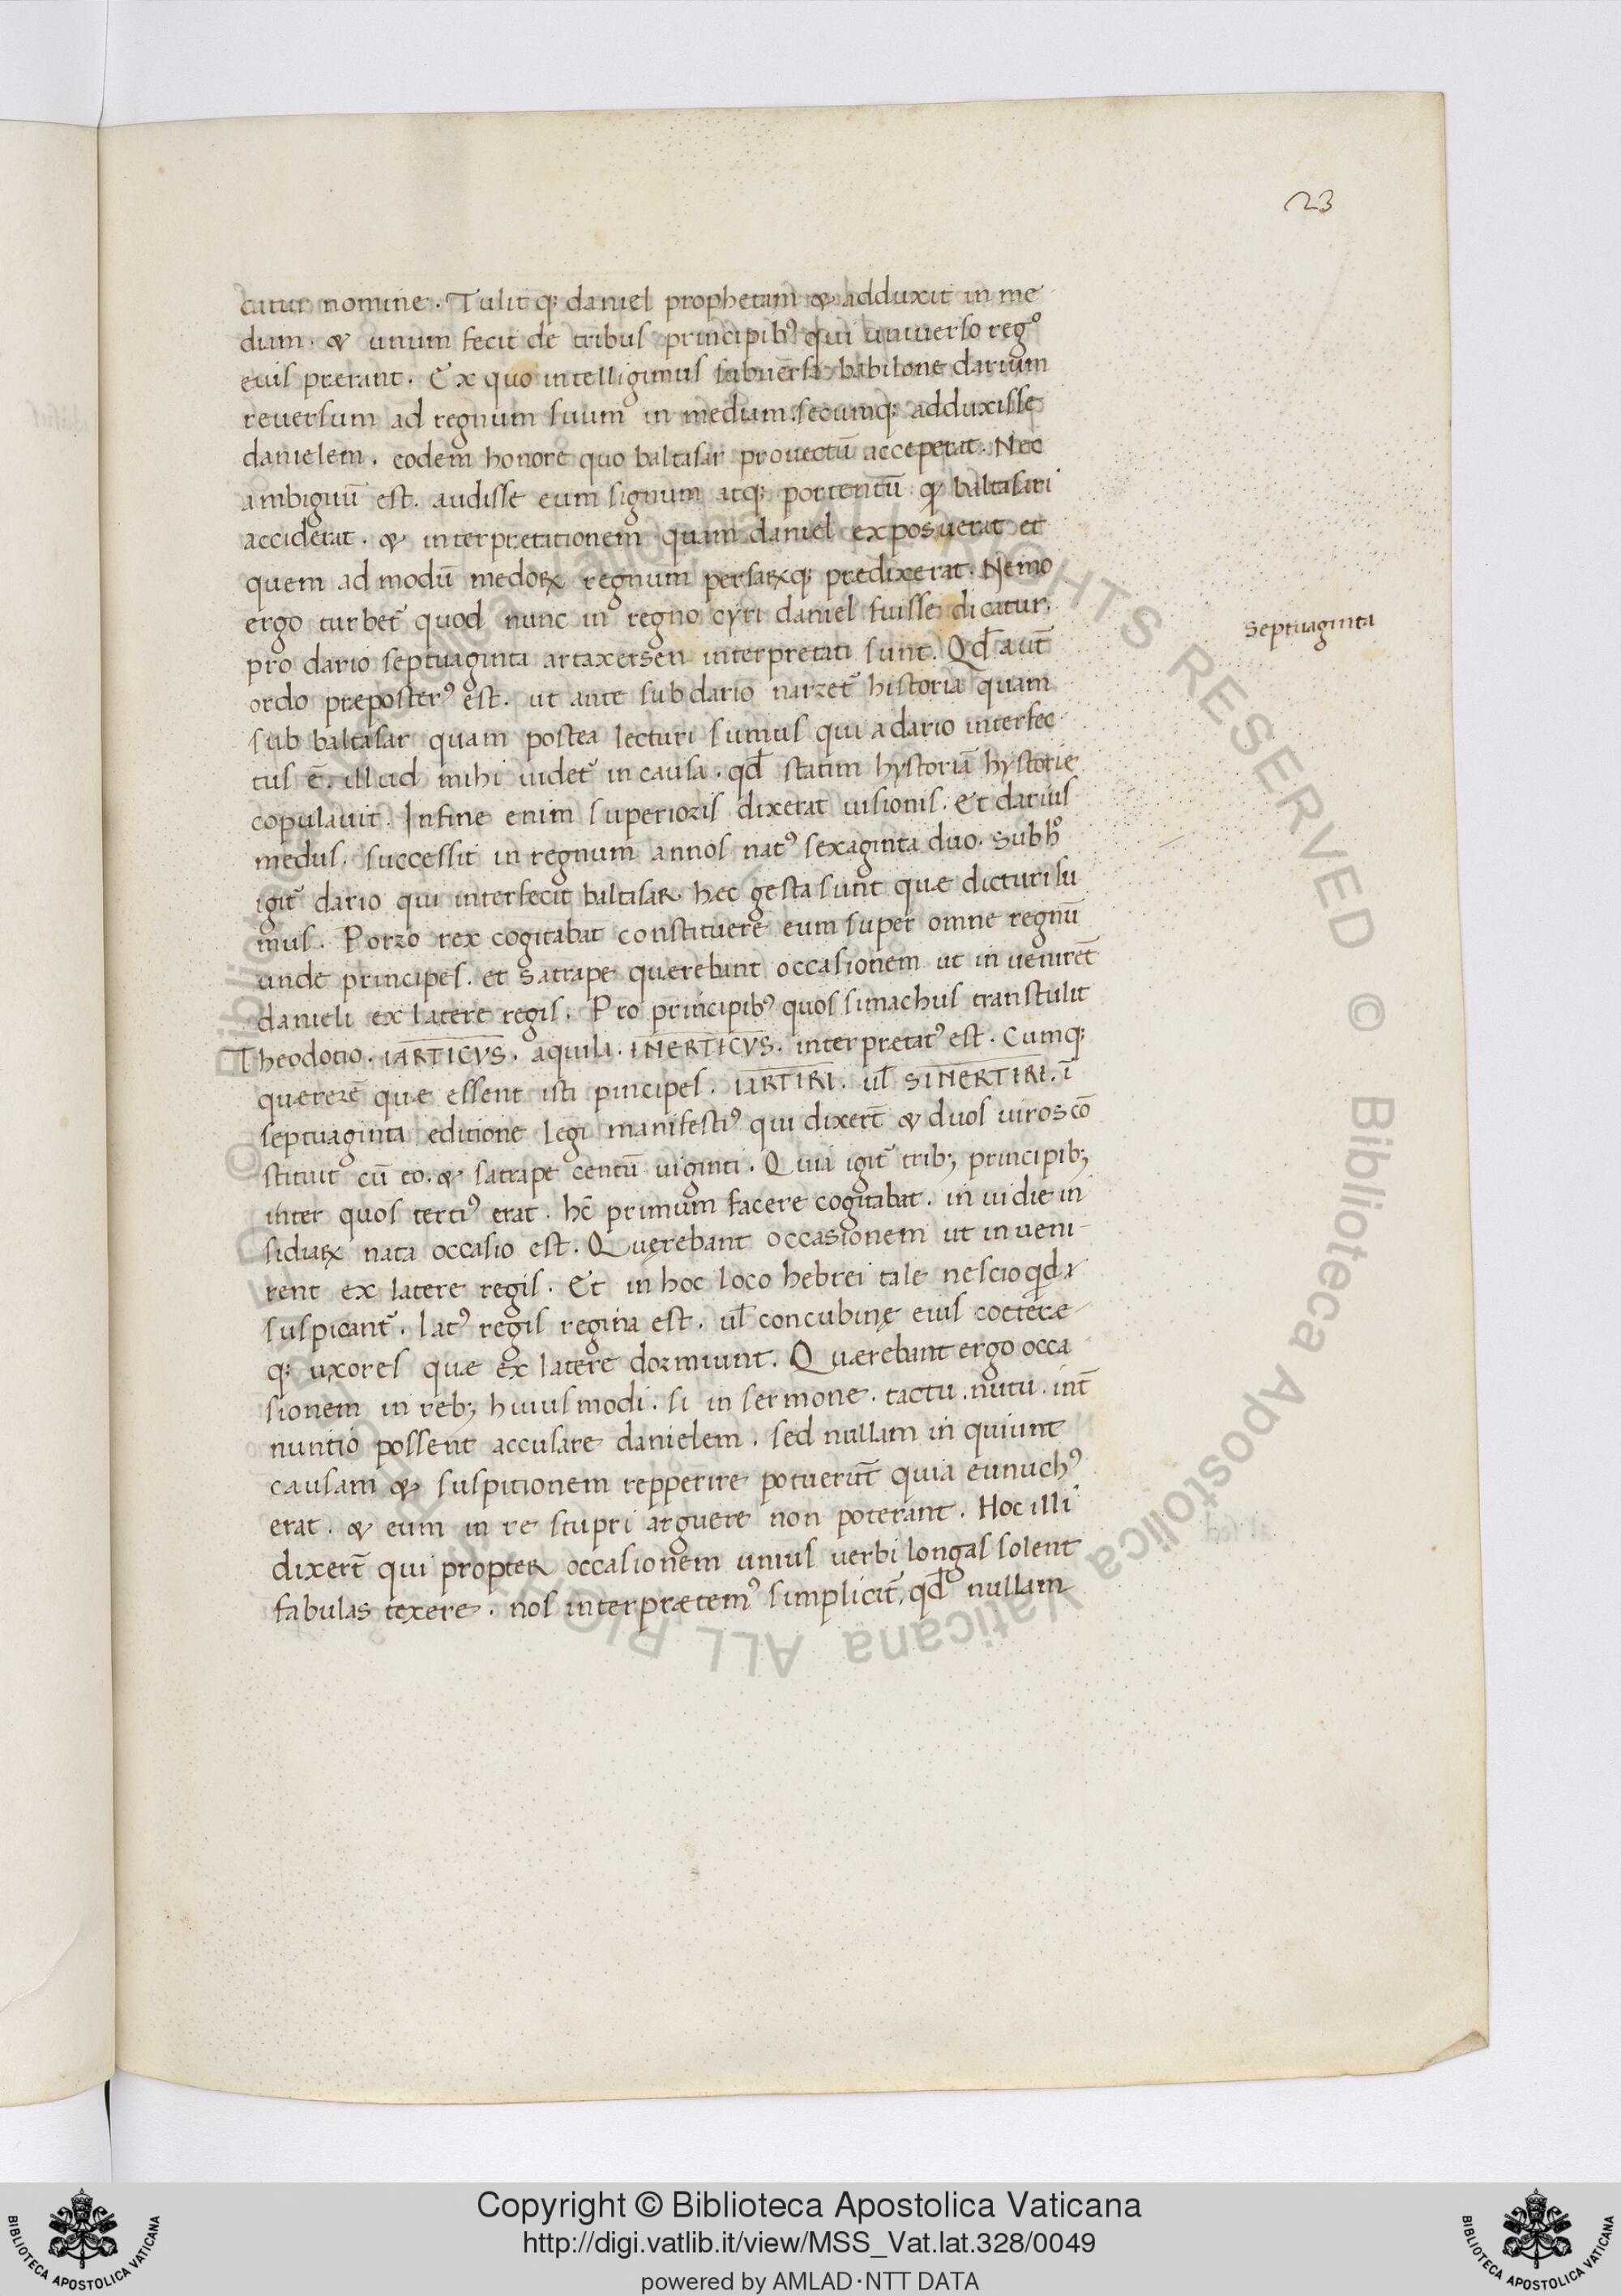 23
catur nomine. Tulitq; daniel prophetam & adduxit in me
diam. & unum fecit de tribus principibꝰ qui universo regº
eius prerant. Ex quo intelligimus subuersa babilone darium
reversum ad regnum suum in mediam. secumq; adduxisse
danielem. eodem honore quo baltasar provectū acceperat. Nec
ambiguū est. audisse eum signum atq; portentū qđ baltasari
acciderat. & interpretationem quam daniel exposuerat et
quem ad modū medoꝝ regnum persaꝝq; prædixerat. Nemo
ergo turbet̄ quod nunc in regno cyri daniel fuisse dicatur,
pro dario septuaginta artaxersen interpretati sunt. Qđ aut̄
ordo præposterꝰ est. ut ante sub dario narret̄ historia quam
sub baltasar quam postea lecturi sumus qui a dario interfec
tus ē. illud mihi uidet̄ in causa. qđ statim hystoriā hystorie
copulavit. In fine enim superioris dixerat visionis. Et darius
medus. successit in regnum annos natꝰ sexaginta duo. Sub hº
igit̄ dario qui interfecit baltasaR. hec gesta sunt quæ dicturi su
mus. Porro rex cogitabat constituere eum super omne regnū
unde principes. et satrape querebant occasionem ut invenirēt
danieli ex latere regis. Pro principibꝰ quos simachus transtulit
Theodotio. IARTICVS. aquila. INERTICVS. interpretatꝰ est. Cumq;
quærerē quæ essent isti pincipes. IARTIRI. ul̄ SINERTIRI. ī
septuaginta editione legi manifestiꝰ qui dixert̄ & duos viros cō
stituit cū eo. & satrape centū viginti. Quia igit̄ trib; principib;
inter quos tertiꝰ erat. hc̄ primum facere cogitabat. invidie in
sidiaꝝ nata occasio est. Quęrebant occasionem ut inveni-
rent ex latere regis. Et in hoc loco hebrei tale nescio qđ
suspicant̄. latꝰ regis regina est. ul̄ concubinę eius coeteræ
q; uxores quæ ex latere dormiunt. Quærebant ergo occa
sionem in reb; huiusmodi. si in sermone. tactu. nutu. int̄
nuntio possent accusare danielem. sed nullam inquiunt
causam & suspitionem repperire potuerūt quia eunuchꝰ
erat. & eum in re stupri arguere non poterant. Hoc illi
dixert̄ qui propteR occasionem unius verbi longas solent
fabulas texere. nos interprætemꝰ simplicit̄, qđ nullam
septuaginta
© Biblioteca Apostolica Vaticana ALL RIGHTS RESERVED
Copyright © Biblioteca Apostolica Vaticana
http://digi.vatlib.it/view/MSS_Vat.lat.328/0049
powered by AMLAD·NTT DATA
BIBLIOTECA APOSTOLICA VATICANA
BIBLIOTECA APOSTOLICA VATICANA